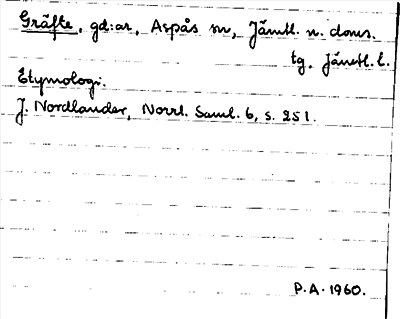 Gräfte, gd:ar, Aspås sn, Jämtl. n. doms.
tg, Jämtl. l.
Etymologi.
J. Nordlander, Norrl. Saml. 6, s. 251.
P.A. 1960.